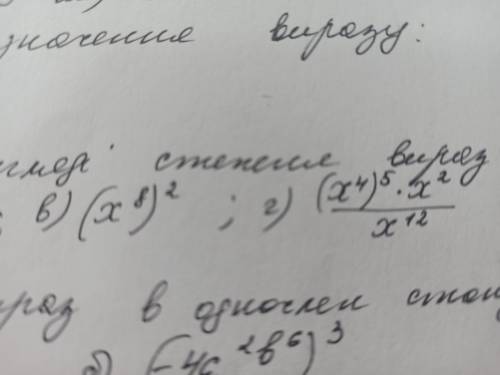 значення виразу:
гляді степеня вираз
в) (x⁸)² ; г) (x⁴)⁵ · x² / x¹²
раз в одночлен стан
б) (-4c²b⁶)³